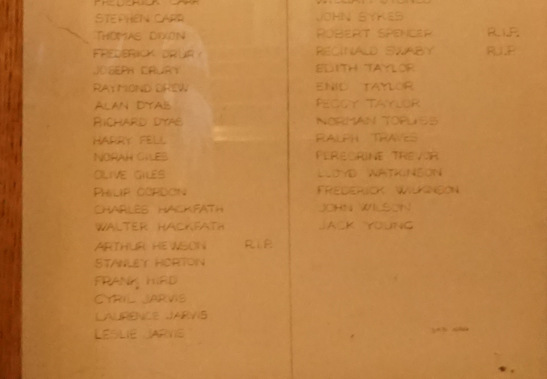 FREDERICK CARR
STEPHEN CARR
THOMAS DIXON
FREDERICK DRURY
JOSEPH DRURY
RAYMOND DREW
ALAN DYAS
RICHARD DYAS
HARRY FELL
NORAH GILES
OLIVE GILES
PHILIP GORDON
CHARLES HACKFATH
WALTER HACKFATH
ARTHUR HEWSON R.I.P.
STANLEY HORTON
FRANK HIRD
CYRIL JARVIS
LAURENCE JARVIS
LESLIE JARVIS
JOHN SYKES
ROBERT SPENCER R.I.P.
REGINALD SWABY R.I.P.
EDITH TAYLOR
ENID TAYLOR
PEGGY TAYLOR
NORMAN TOPLISS
RALPH TRAVES
PEREGRINE TREVOR
LLOYD WATKINSON
FREDERICK WILKINSON
JOHN WILSON
JACK YOUNG